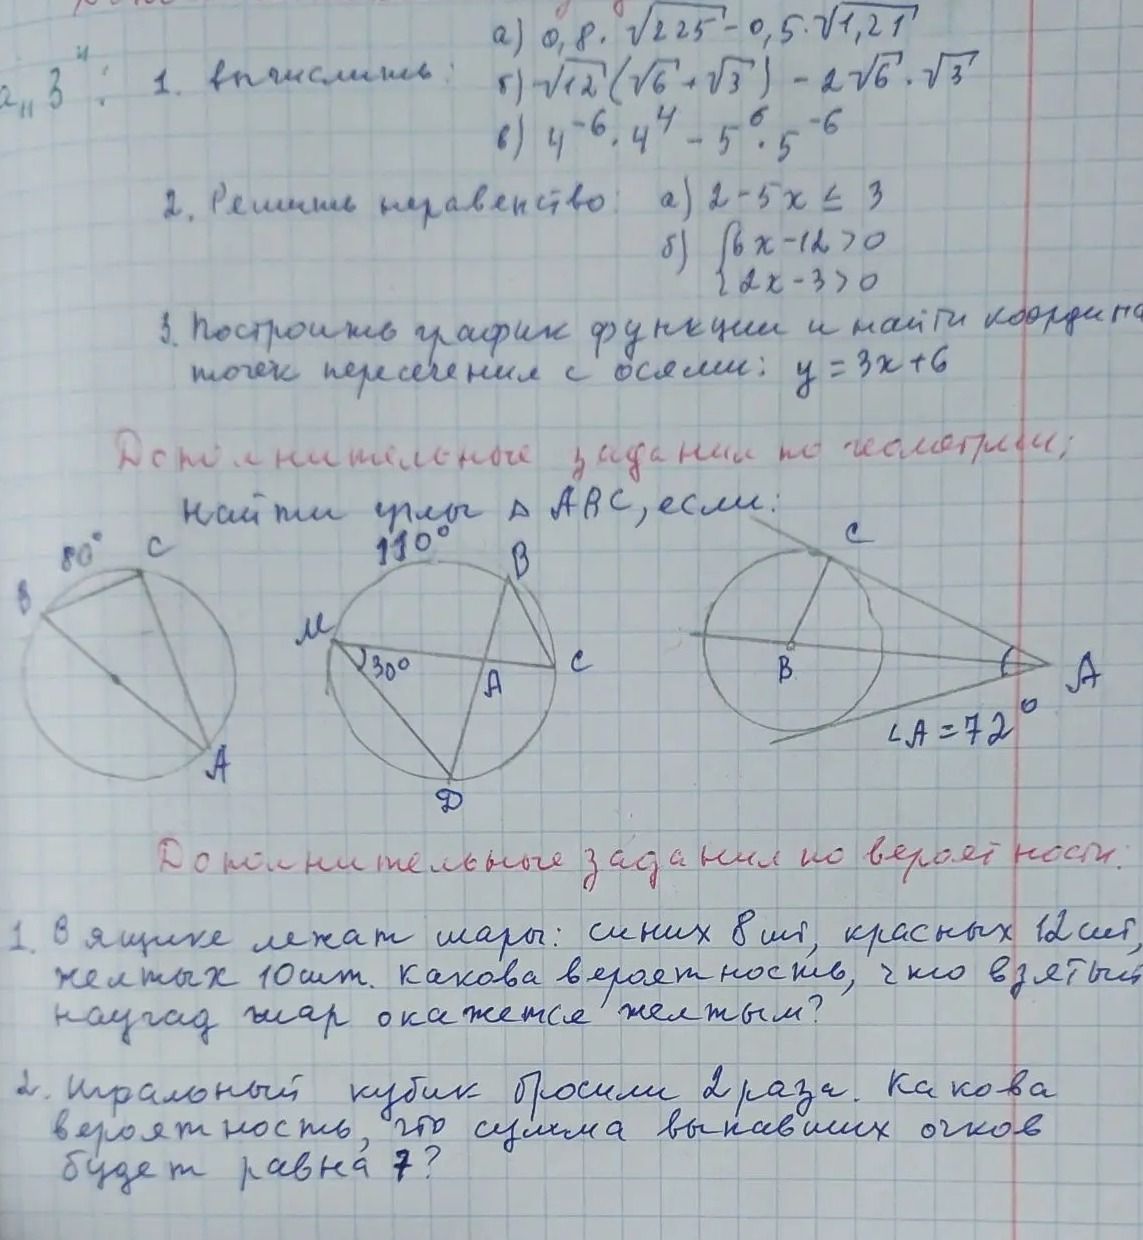 а) 0,8 · √225 - 0,5 · √1,21
1. Вычислить: б) √12 (√6 + √3) - 2√6 · √3
в) 4⁻⁶ · 4⁴ - 5⁶ · 5⁻⁶
2. Решить неравенство: а) 2 - 5x ≤ 3
б) {6x - 12 > 0
{2x - 3 > 0
3. Построить график функции и найти координа
точек пересечения с осями: y = 3x + 6
Дополнительные задания по геометрии:
Найти углы △ ABC, если:
80° C
B
A
110°
B
M
30°
A
C
Д
C
B
A
∠A = 72°
Дополнительные задания по вероятности:
1. В ящике лежат шары: синих 8 шт, красных 12 шт,
желтых 10 шт. Какова вероятность, что взятый
наугад шар окажется желтым?
2. Игральный кубик бросили 2 раза. Какова
вероятность, что сумма выпавших очков
будет равна 7?